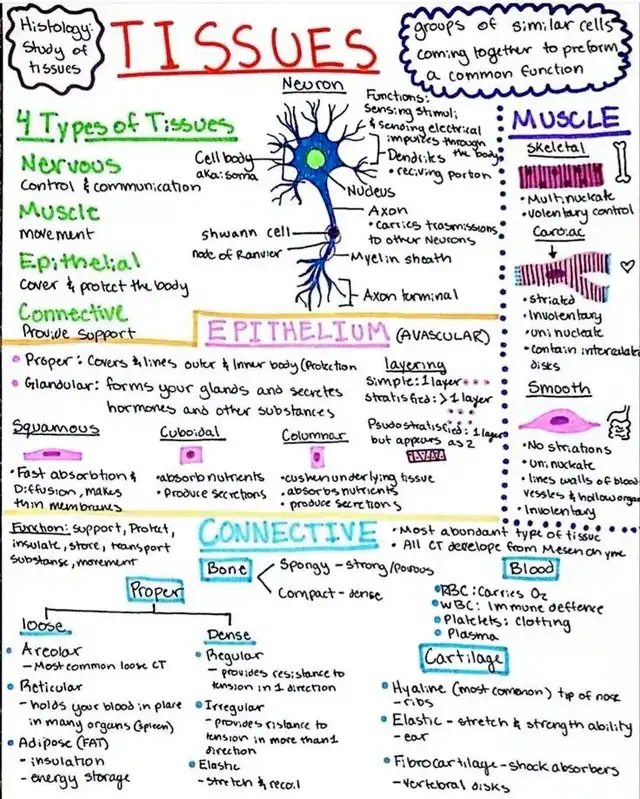 Histology:
Study of
tissues
TISSUES
groups of similar cells
coming together to preform
a common function
4 Types of Tissues
Nervous
Control & communication
Muscle
movement
Epithelial
Cover & protect the body
Connective
Provide support
Neuron
Functions:
Sensing stimuli
& sending electrical
impulses through
the body
Cell body
aka: soma
Dendrites
• reciving porton
Nucleus
Axon
• carries trasmissions
to other Neurons
shwann cell
node of Ranvier
Myelin sheath
Axon terminal
MUSCLE
Skeletal
• Multinucleate
• Volentary control
Cardiac
• striated
• Involentary
• uninucleate
• contain intercalate
disks
Smooth
• No striations
• uninucleate
• lines walls of blood
vessles & hollow organ
• Involentary
EPITHELIUM (AVASCULAR)
• Proper: Covers & lines outer & Inner body (Protection
• Glandular: forms your glands and secretes
hormones and other substances
layering
Simple: 1 layer
stratisfied: >1 layer
Psudostratisfied: 1 layer
but appears as 2
Squamous
• Fast absorbtion &
Diffusion, makes
thin membranes
Cuboidal
• absorb nutrients
• Produce secretions
Columnar
• cushen underlying tissue
• absorbs nutrients
• produce secretions
Function: support, Protect,
insulate, store, transport
substanse, movement
CONNECTIVE
• Most abundant type of tissue
• All CT develope from Mesenchyme
Bone
Spongy - strong/porous
Compact - dense
Blood
• RBC: Carries O2
• WBC: Immune deffence
• Platelets: Clotting
• Plasma
Proper
loose
• Areolar
- Most common loose CT
• Reticular
- holds your blood in place
in many organs (spleen)
• Adipose (FAT)
- insulation
- energy storage
Dense
• Regular
- provides resistance to
tension in 1 direction
• Irregular
- provides ristance to
tension in more than 1
direction
• Elastic
- stretch & recoil
Cartilage
• Hyaline (most common) tip of nose
- ribs
• Elastic - stretch & strength ability
- ear
• Fibrocartilage - shock absorbers
- vertebral disks